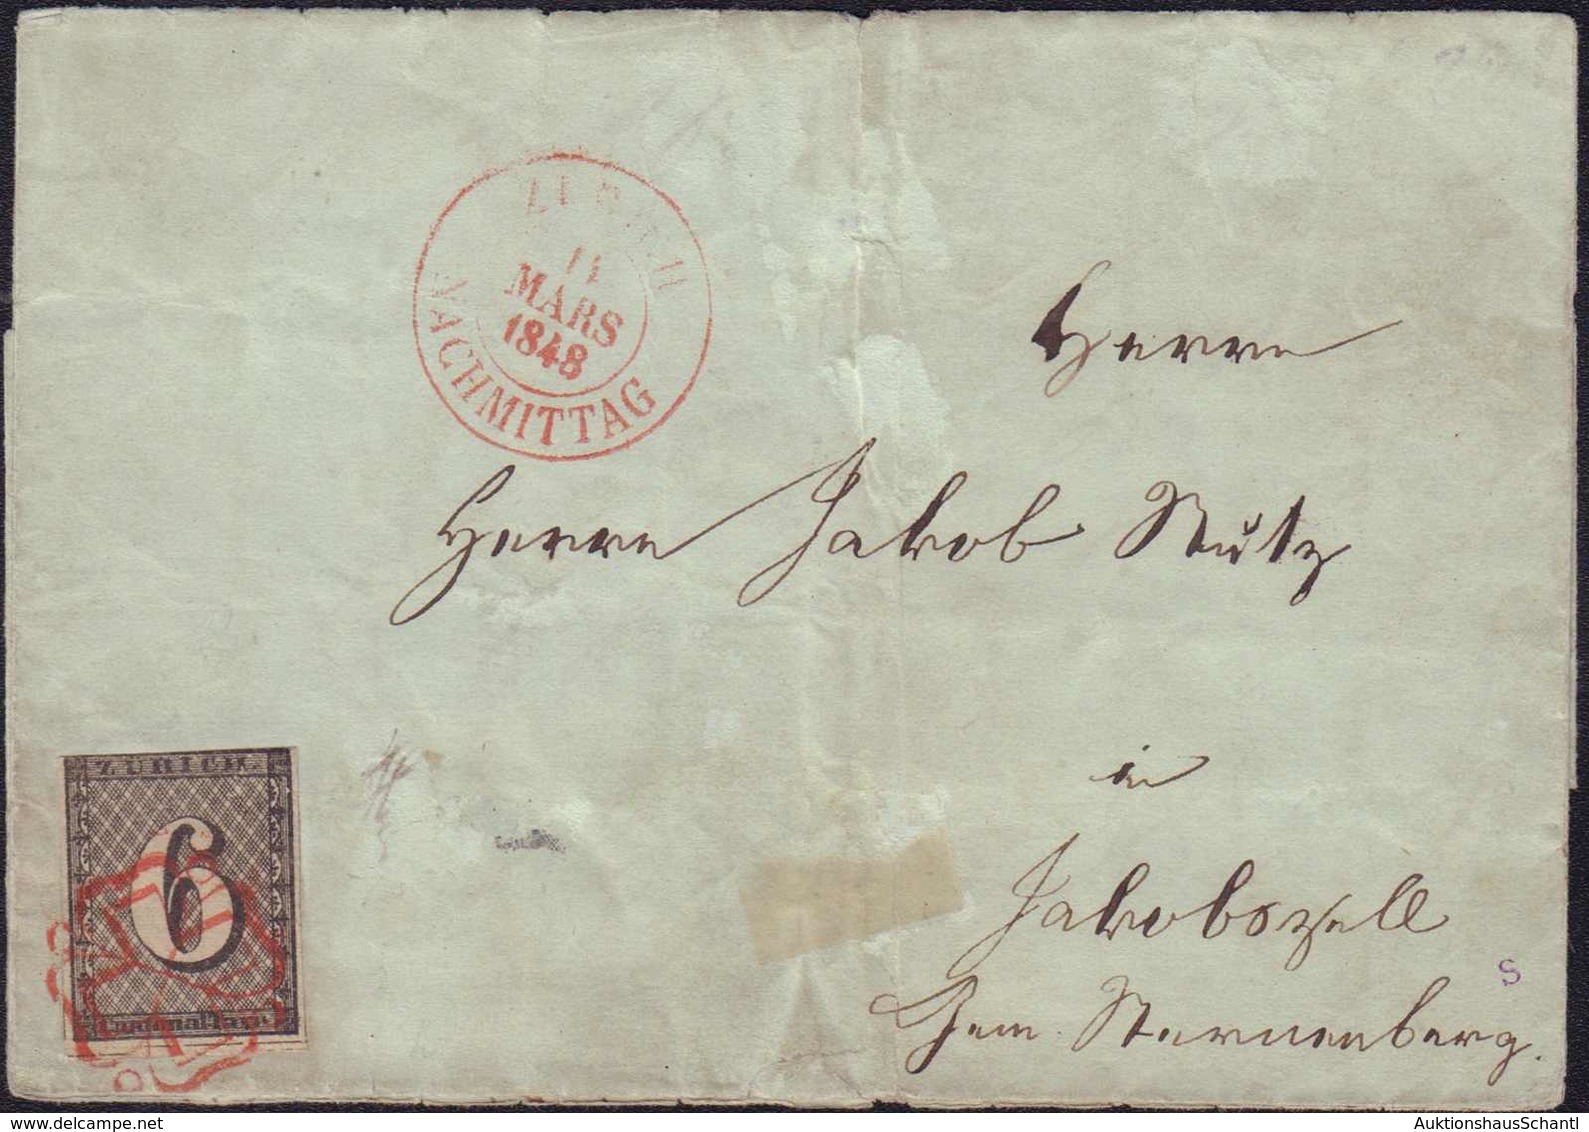 ZÜRICH
11
MARS
1848
NACHMITTAG
Herrn
Herrn Jakob Stutz
in
Jakobszell
Gem. Sternenberg.
ZÜRICH.
6
Cantonal-Taxe
S
www.delcampe.net
AuktionshausSchantl